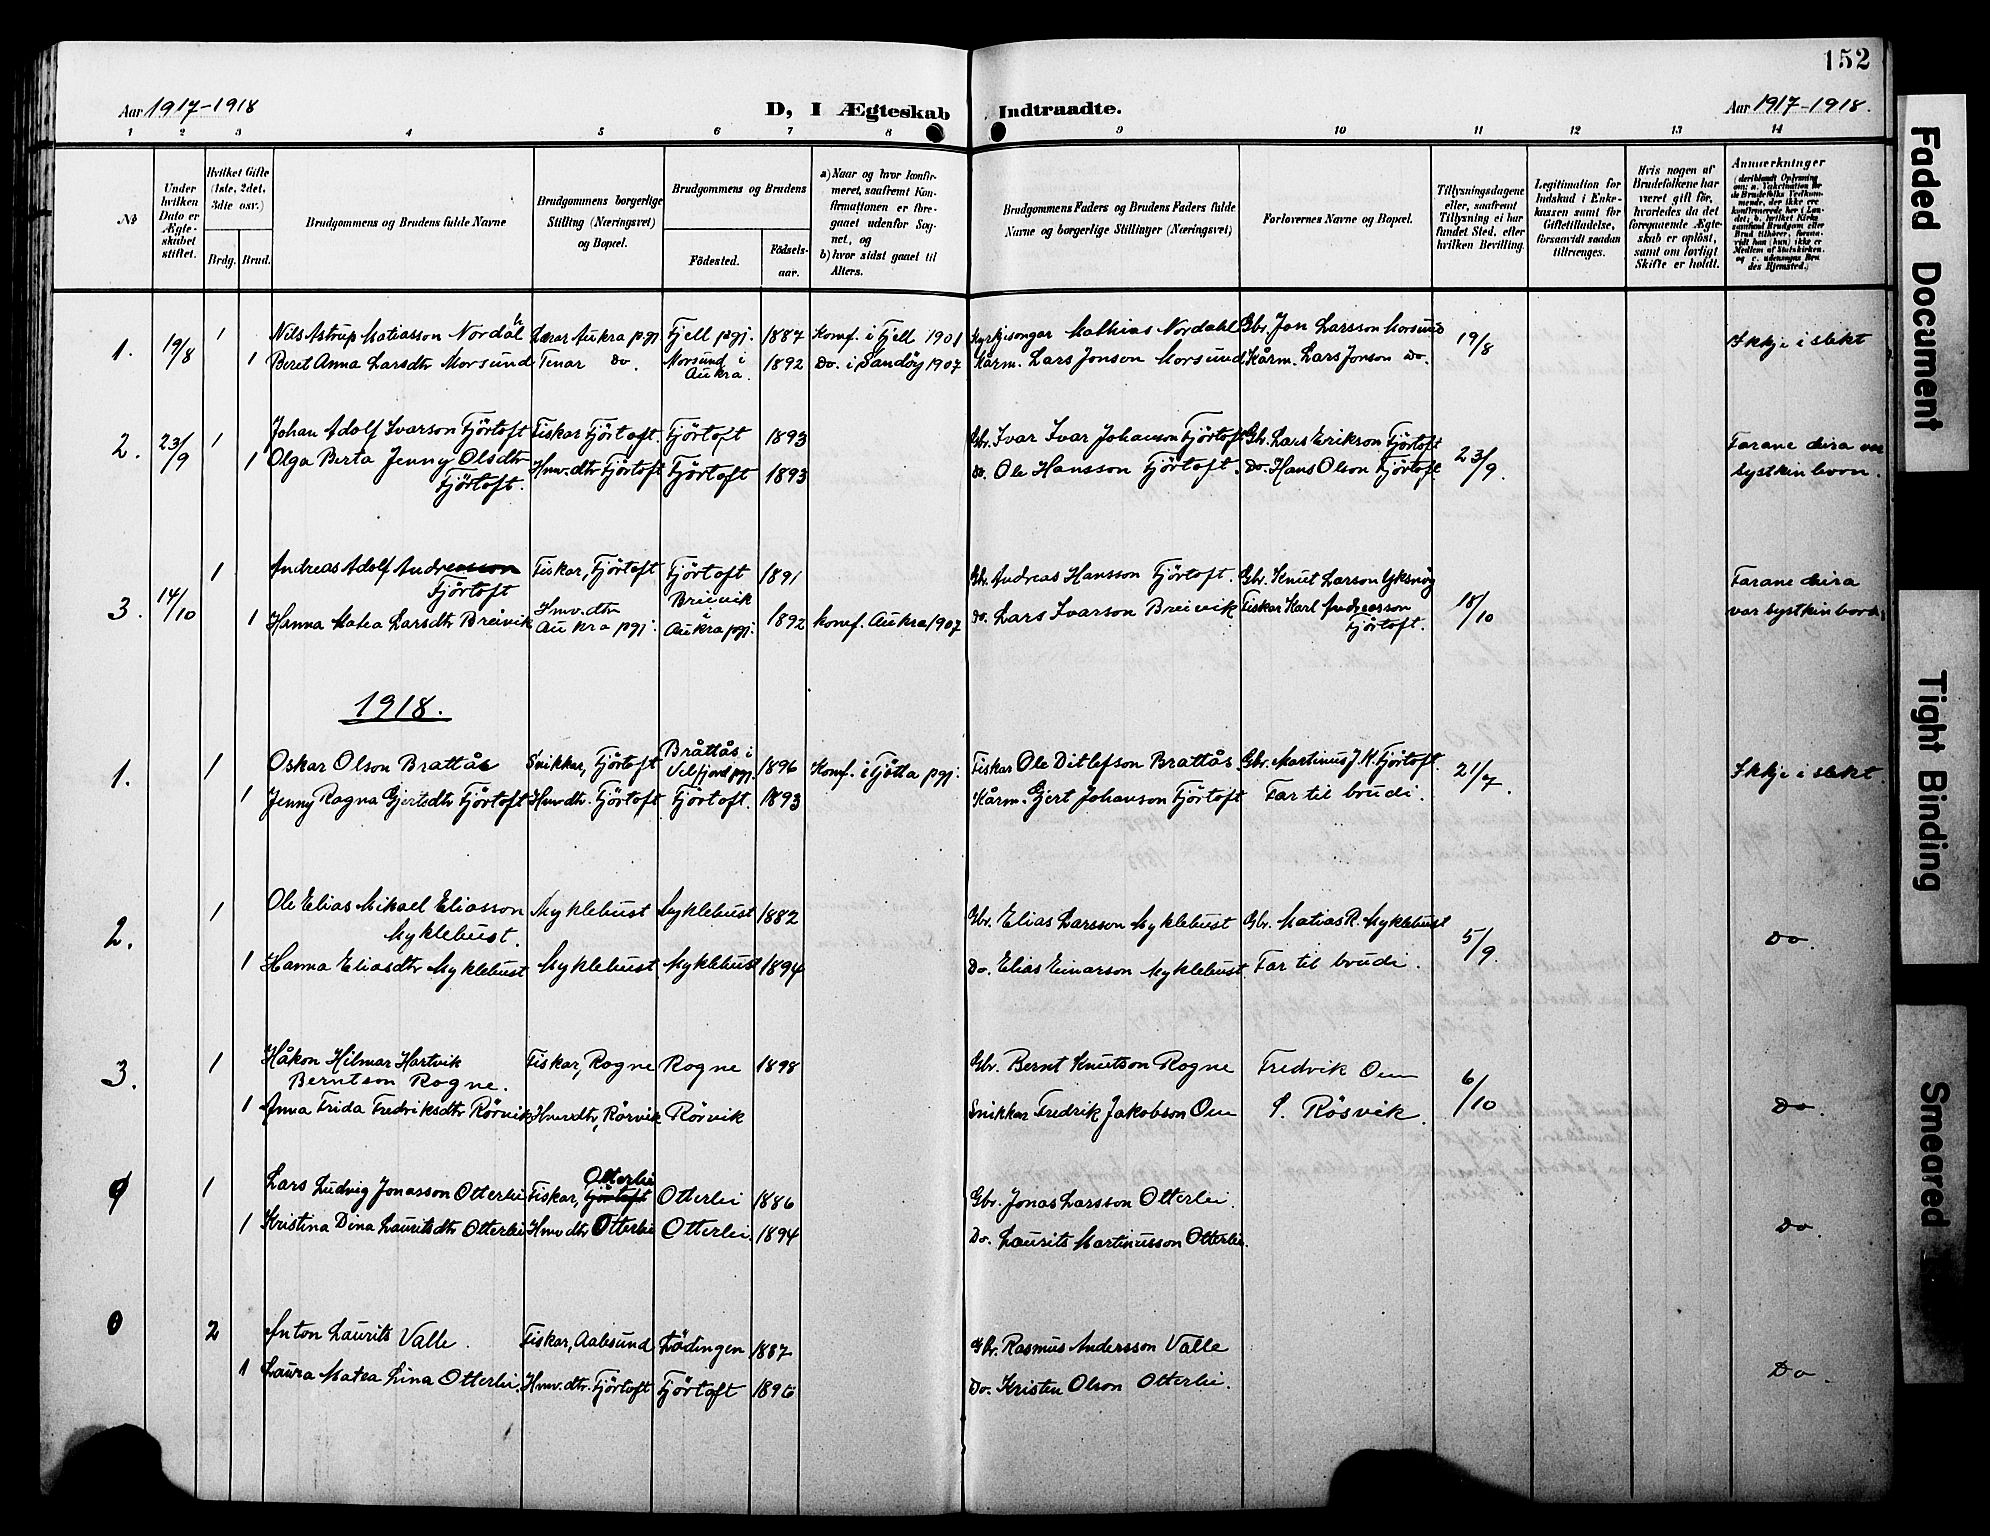 152
Aar 1917-1918
D, I Ægteskab Indtraadte.
Aar 1917-1918.
1 2 3 4 5 6 7 8 9 10 11 12 13 14
No
Under hvilken Dato er Ægteskabet stiftet.
Hvilket Gifte (1ste, 2det, 3die osv.)
Brdg. Brud.
Brudgommens og Brudens fulde Navne
Brudgommens borgerlige Stilling (Næringsvei) og Bopæl.
Brudgommens og Brudens
Födested.
Födsels-aar.
a) Naar og hvor konfirmeret, saafremt Konfirmationen er foregaaet udenfor Sognet, og
b) hvor sidst gaaet til Alters.
Brudgommens Faders og Brudens Faders fulde Navne og borgerlige Stillinger (Næringsvei)
Forlovernes Navne og Bopæl.
Tillysningsdagene eller, saafremt Tillysning ei har fundet Sted, efter hvilken Bevilling.
Legitimation for Indskud i Enkekassen samt for Giftetilladelse, forsaavidt saadan tiltrænges.
Hvis nogen af Brudefolkene har været gift för, hvorledes da det foregaaende Ægteskab er oplöst, samt om lovligt Skifte er holdt.
Anmærkninger
1. 19/8 1 Nils Astrup Matiasson Nordal Lærar Aukra pgj Fjell pgj. 1887 Konf. i Fjell 1901 Kyrkjesongar Mathias Nordahl Gbr. Jon Larsson Morsund 19/8 Ikkje i slekt
1 Beret Anna Larsdtr Morsund Tenar Do. Morsund i Aukra 1892 Do. i Sandöy 1907 Kårm. Lars Jonson Morsund Kårm. Lars Jonson Do.
2. 23/9 1 Johan Adolf Ivarson Fjörtoft Fiskar Fjörtoft. Fjörtoft 1893 Gbr. Ivar Ivar Johanson Fjörtoft Gbr. Lars Erikson Fjörtoft 23/9. Farane deira var
1 Olga Berta Jenny Olsdtr Fjörtoft. Hmv.dtr Fjörtoft Fjörtoft 1893 Do. Ole Hansson Fjörtoft. Do. Hans Olson Fjörtoft systkinborn.
3. 14/10 1 Andreas Adolf Andreasson Fjörtoft Fiskar, Fjörtoft Fjörtoft 1891 Gbr. Andreas Hansson Fjörtoft. Gbr. Knut Larson Uksnöy 18/10 Farane deira
1 Hanna Matea Larsdtr Breivik Hmv.dtr Aukra pgj. Breivik i Aukra pgj. 1892 konf. Aukra 1907 Do. Lars Ivarson Breivik Fiskar Karl Andreasson Fjörtoft. var systkinborn
1918.
1. 1 Oskar Olson Brattås Snikkar, Fjörtoft Bråttås i Velfjord pgj. 1896 Konf. i Tjötta pgj. Fiskar Ole Ditlefson Brattås. Gbr. Martinus J. K. Fjörtoft. 21/7. Ikkje i slekt.
1 Jenny Ragna Gjertsdtr Fjörtoft Hmvdtr. Fjörtoft Fjörtoft. 1893 Kårm. Gjert Johanson Fjörtoft Far til brudi.
2. 1 Ole Elias Mikael Eliasson Myklebust. Myklebust Myklebust 1882 Gbr. Elias Larsson Myklebust Gbr. Matias R. Myklebust 5/9. Do.
1 Hanna Eliasdtr Myklebust Myklebust Myklebust 1894 Do. Elias Einarson Myklebust. Far til brudi.
3. 1 Håkon Hilmar Hartvik Berntson Rogne. Fiskar, Rogne Rogne 1898 Gbr. Bernt Knutson Rogne Fredrik Oen 6/10 Do.
1 Anna Frida Fredriksdtr Rörvik Hmvdtr, Rörvik Rörvik Snikkar Fredrik Jakobson Oen L. Rösvik.
1 Lars Ludvig Jonasson Otterlei Fiskar, Fjörtoft Otterlei Otterlei 1886 Gbr. Jonas Larsson Otterlei. Do
1 Kristina Dina Lauritsdtr Otterlei Hmvdtr Otterlei Otterlei. 1894 Do. Laurits Martinusson Otterlei.
0 2 Anton Laurits Valle. Fiskar, Aalesund Lödingen 1887 Gbr. Rasmus Andersson Valle Do.
1 Laura Matea Lina Otterlei. Hmv.dtr. Fjörtoft Fjörtoft 1896 Do. Kristen Olson Otterlei.
Faded Document
Tight Binding
Smeared